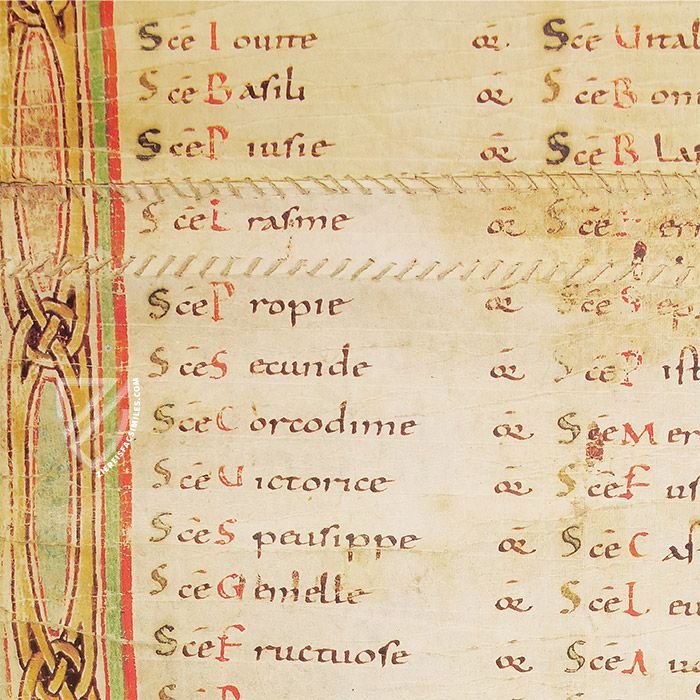 Sc̄e Iouitte or̄ Sc̄e Uital
Sc̄e Basili or̄ Sc̄e Bon
Sc̄e Piusie or̄ Sc̄e Bla
Sc̄e Erasme or̄ Sc̄e
Sc̄e Propie or̄ Sc̄e Sep
Sc̄e Secunde or̄ Sc̄e Pist
Sc̄e Corcodime or̄ Sc̄e Mer
Sc̄e Uictorice or̄ Sc̄e Fus
Sc̄e Speusippe or̄ Sc̄e Cas
Sc̄e Gemelle or̄ Sc̄e Leu
Sc̄e Fructuose or̄ Sc̄e
ZIEREIS FACSIMILES.COM